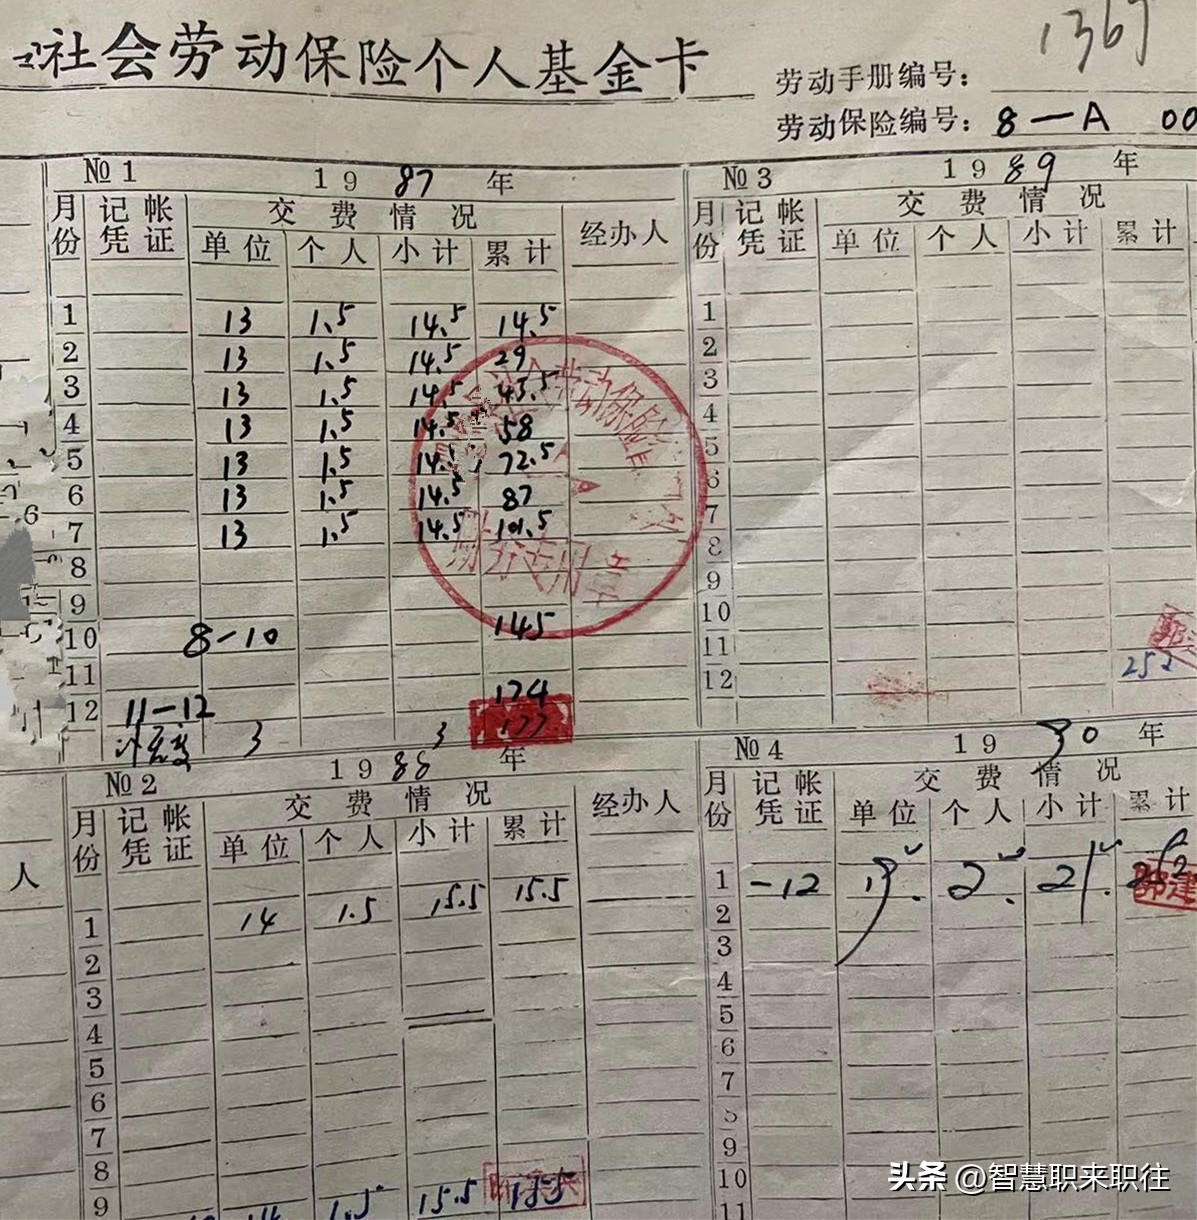 社会劳动保险个人基金卡
1367
劳动手册编号：
劳动保险编号：8—A 00
№1 1987年
月份 记帐凭证 交费情况 经办人
单位 个人 小计 累计
1 13 1.5 14.5 14.5
2 13 1.5 14.5 29
3 13 1.5 14.5 43.5
4 13 1.5 14.5 58
5 13 1.5 14.5 72.5
6 13 1.5 14.5 87
7 13 1.5 14.5 101.5
8
9
10 8-10 145
11
12 11-12 174
3 3 177
财务专用章
№2 1988年
月份 记帐凭证 交费情况 经办人
单位 个人 小计 累计
1 14 1.5 15.5 15.5
2
3
4
5
6
7
8
9 14 1.5 15.5 155
№3 1989年
月份 记帐凭证 交费情况
单位 个人 小计 累计
1
2
3
4
5
6
7
8
9
10
11
12 252
№4 1990年
月份 记帐凭证 交费情况
单位 个人 小计 累计
1 -12 19. 2. 21. 252
2
3
4
5
6
7
9
10
11
人
6
头条 @智慧职来职往